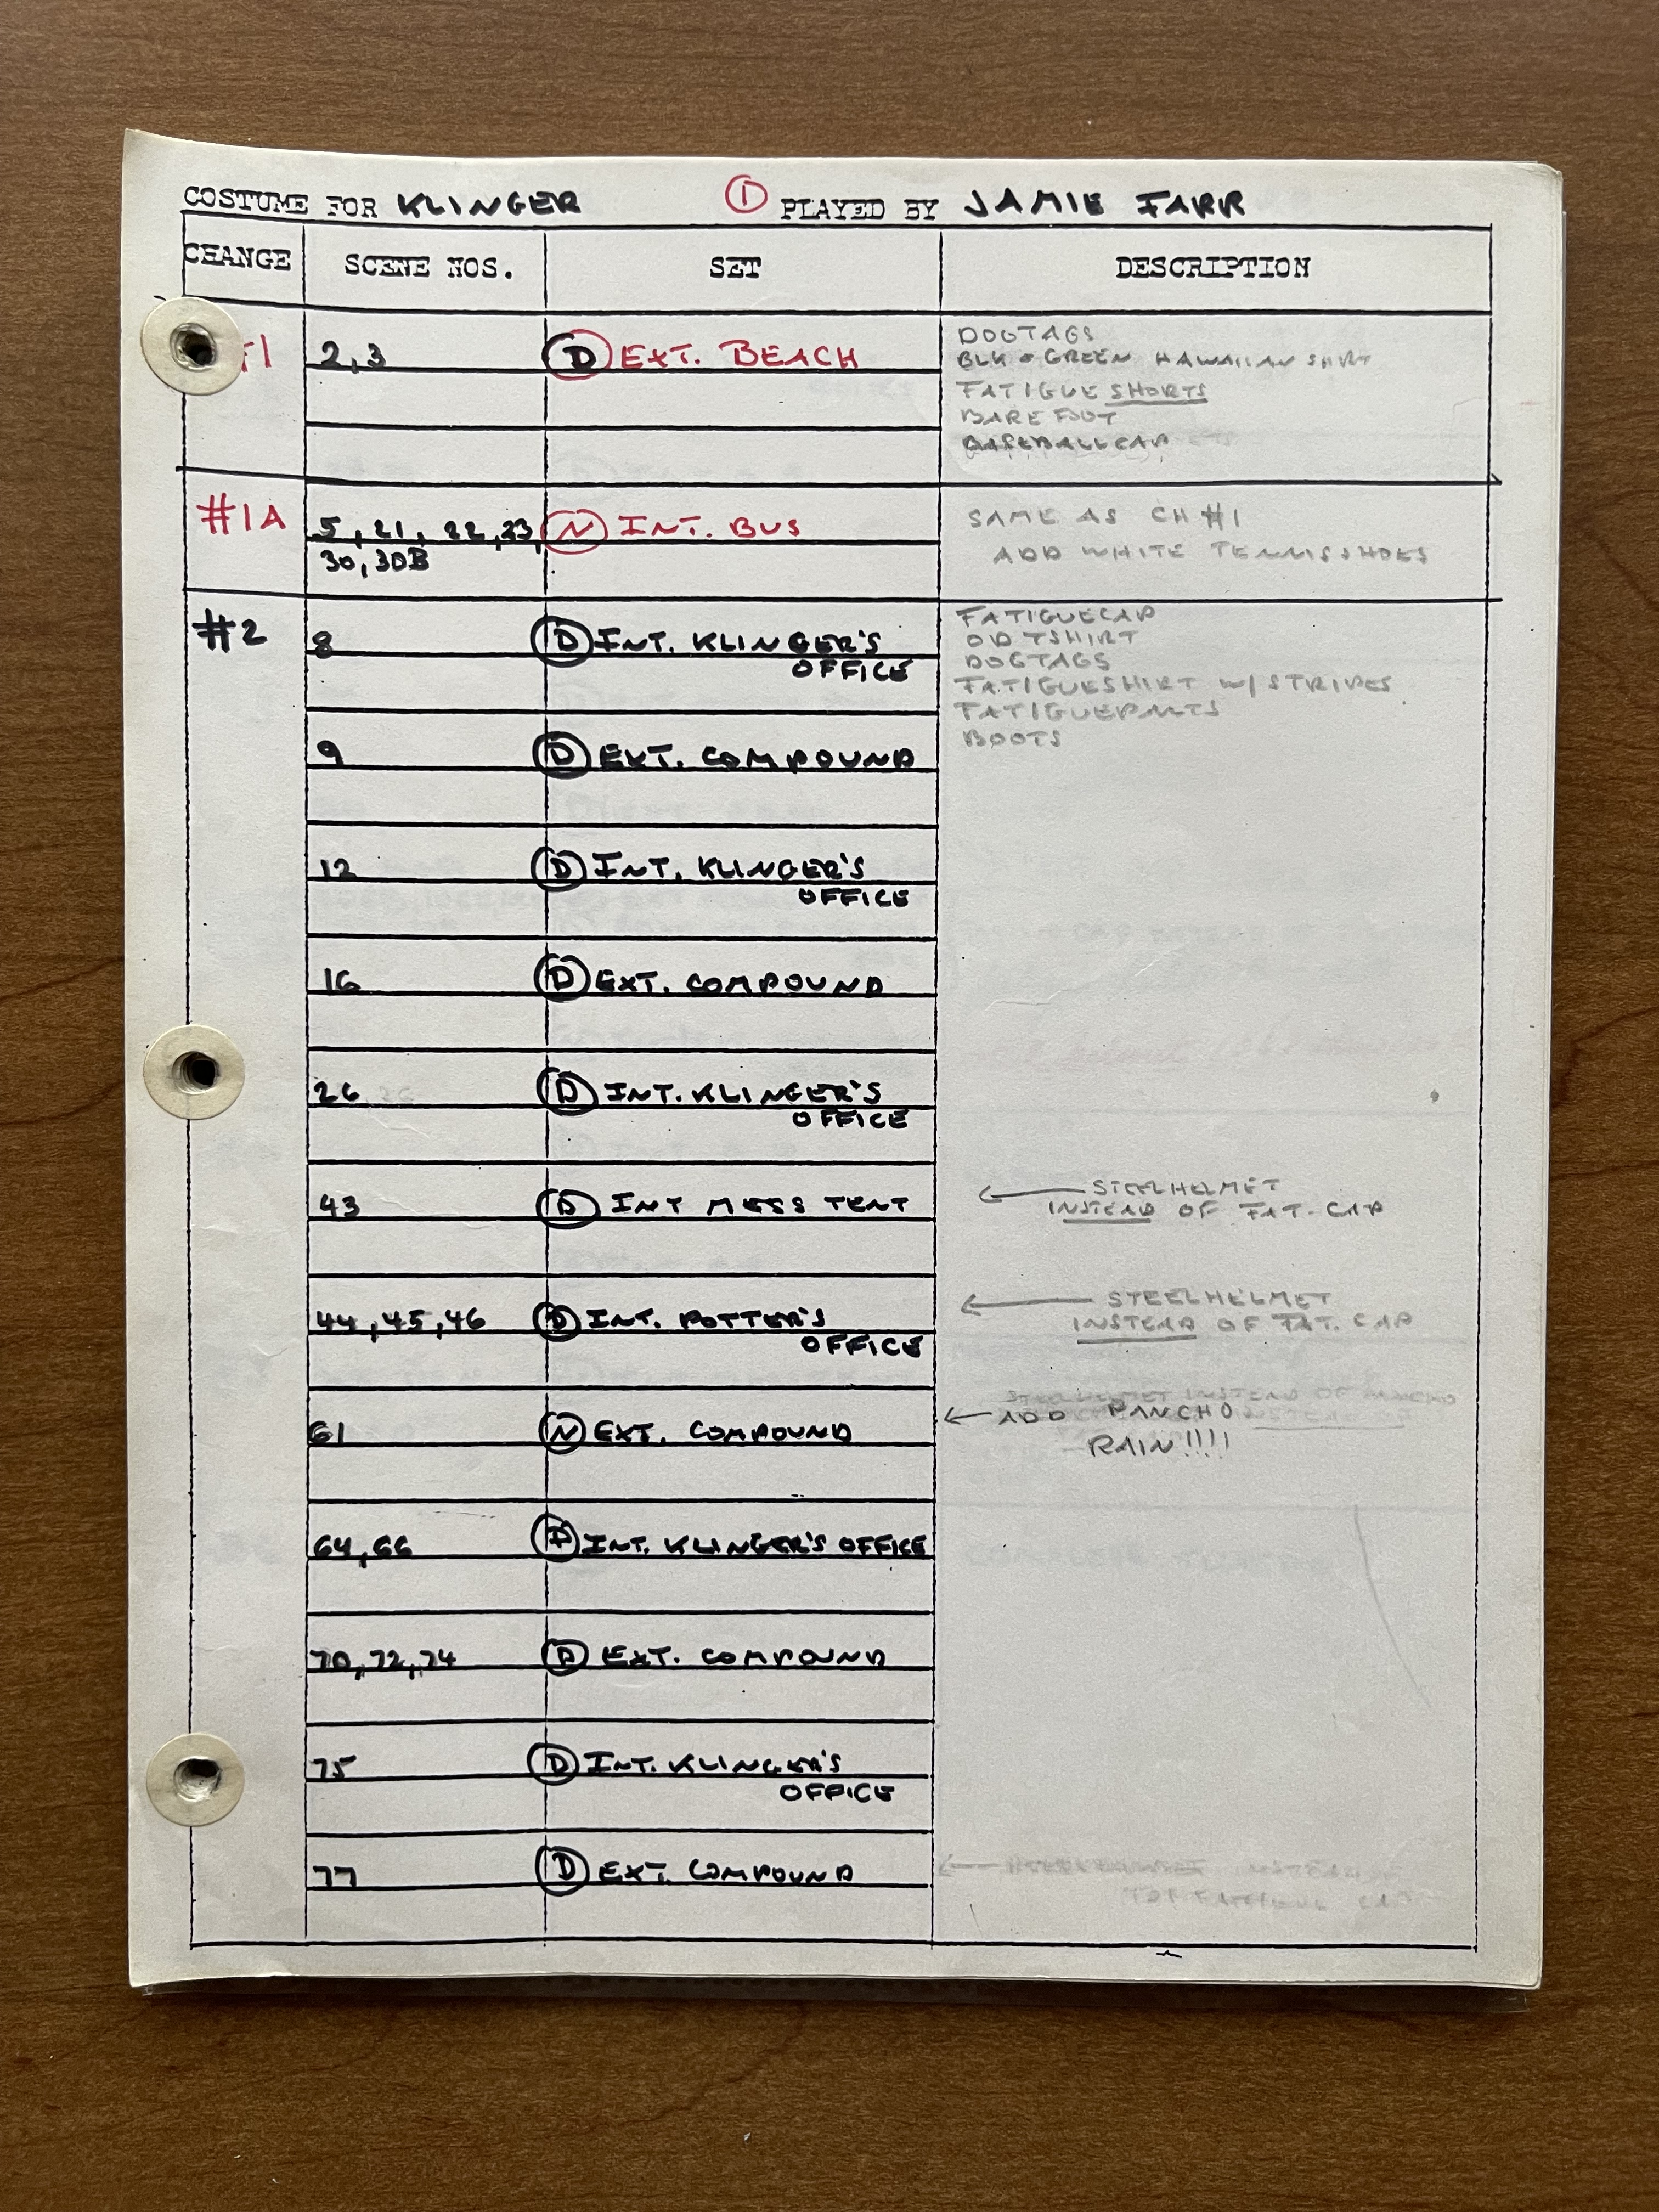 COSTUME FOR KLINGER ① PLAYED BY JAMIE FARR
CHANGE SCENE NOS. SET DESCRIPTION
#1 2,3 Ⓓ EXT. BEACH
DOGTAGS
BLK & GREEN HAWAIIAN SHIRT
FATIGUE SHORTS
BAREFOOT
BASEBALL CAP
#1A 5, 21, 22, 23, Ⓝ INT. BUS
30, 30B
SAME AS CH #1
ADD WHITE TENNIS SHOES
#2 8 Ⓓ INT. KLINGER'S
OFFICE
FATIGUECAP
OD TSHIRT
DOGTAGS
FATIGUESHIRT W/ STRIPES
FATIGUEPANTS
BOOTS
9 Ⓓ EXT. COMPOUND
12 Ⓓ INT. KLINGER'S
OFFICE
16 Ⓓ EXT. COMPOUND
26 Ⓓ INT. KLINGER'S
OFFICE
43 Ⓓ INT MESS TENT
← STEELHELMET
INSTEAD OF FAT. CAP
44,45,46 Ⓓ INT. POTTER'S
OFFICE
← STEELHELMET
INSTEAD OF FAT. CAP
61 Ⓝ EXT. COMPOUND
STEELHELMET INSTEAD OF PANCHO
← ADD PANCHO
RAIN!!!!
64,66 INT. KLINGER'S OFFICE
70,72,74 Ⓓ EXT. COMPOUND
75 Ⓓ INT. KLINGER'S
OFFICE
77 Ⓓ EXT. COMPOUND
← STEELHELMET INSTEAD OF
FATIGUE CAP